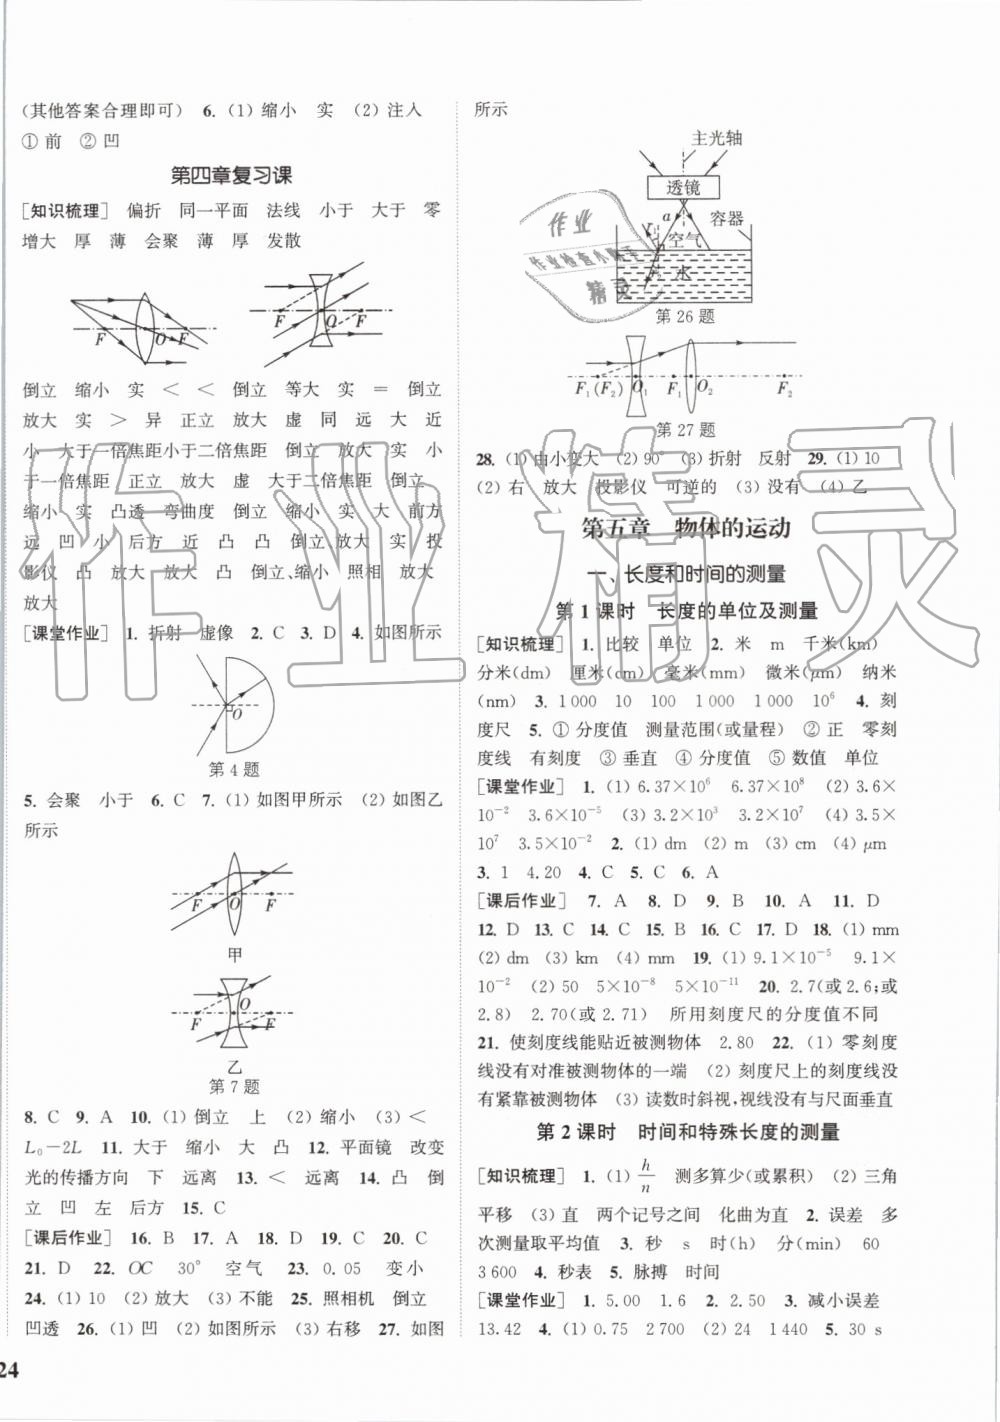 (其他答案合理即可) 6. (1) 缩小 实 (2) 注入
① 前 ② 凹
第四章复习课
[知识梳理] 偏折 同一平面 法线 小于 大于 零
增大 厚 薄 会聚 薄 厚 发散
F O F
F O F
倒立 缩小 实 < < 倒立 等大 实 = 倒立
放大 实 > 异 正立 放大 虚 同 远 大 近
小 大于一倍焦距小于二倍焦距 倒立 放大 实 小
于一倍焦距 正立 放大 虚 大于二倍焦距 倒立
缩小 实 凸透 弯曲度 倒立 缩小 实 大 前方
远 凹 小 后方 近 凸 凸 倒立、放大 实 投
影仪 凸 放大 放大 凸 倒立、缩小 照相 放大
放大
[课堂作业] 1. 折射 虚像 2. C 3. D 4. 如图所示
O
第 4 题
5. 会聚 小于 6. C 7. (1) 如图甲所示 (2) 如图乙
所示
F O F
甲
F O F
乙
第 7 题
8. C 9. A 10. (1) 倒立 上 (2) 缩小 (3) <
L₀-2L 11. 大于 缩小 大 凸 12. 平面镜 改变
光的传播方向 下 远离 13. < 远离 14. 凸 倒
立 凹 左 后方 15. C
[课后作业] 16. B 17. A 18. D 19. C 20. C
21. D 22. OC 30° 空气 23. 0.05 变小
24. (1) 10 (2) 放大 (3) 不能 25. 照相机 倒立
凹透 26. (1) 凹 (2) 如图所示 (3) 右移 27. 如图
24
所示
主光轴
透镜
a 容器
r 空气
水
第 26 题
F₁(F₂) O₁ F₁ O₂ F₂
第 27 题
28. (1) 由小变大 (2) 90° (3) 折射 反射 29. (1) 10
(2) 右 放大 投影仪 可逆的 (3) 没有 (4) 乙
第五章 物体的运动
一、长度和时间的测量
第 1 课时 长度的单位及测量
[知识梳理] 1. 比较 单位 2. 米 m 千米(km)
分米(dm) 厘米(cm) 毫米(mm) 微米(μm) 纳米
(nm) 3. 1 000 10 100 1 000 1 000 10⁶ 4. 刻
度尺 5. ① 分度值 测量范围(或量程) ② 正 零刻
度线 有刻度 ③ 垂直 ④ 分度值 ⑤ 数值 单位
[课堂作业] 1. (1) 6.37×10⁶ 6.37×10⁸ (2) 3.6×
10⁻² 3.6×10⁻⁵ (3) 3.2×10³ 3.2×10⁷ (4) 3.5×
10⁷ 3.5×10⁻² 2. (1) dm (2) m (3) cm (4) μm
3. 1 4.20 4. C 5. C 6. A
[课后作业] 7. A 8. D 9. B 10. A 11. D
12. D 13. C 14. C 15. B 16. C 17. D 18. (1) mm
(2) dm (3) km (4) mm 19. (1) 9.1×10⁻⁵ 9.1×
10⁻² (2) 50 5×10⁻⁸ 5×10⁻¹¹ 20. 2.7(或 2.6;或
2.8) 2.70(或 2.71) 所用刻度尺的分度值不同
21. 使刻度线能贴近被测物体 2.80 22. (1) 零刻度
线没有对准被测物体的一端 (2) 刻度尺上的刻度线没
有紧靠被测物体 (3) 读数时斜视,视线没有与尺面垂直
第 2 课时 时间和特殊长度的测量
[知识梳理] 1. (1) h/n 测多算少(或累积) (2) 三角
平移 (3) 直 两个记号之间 化曲为直 2. 误差 多
次测量取平均值 3. 秒 s 时(h) 分(min) 60
3 600 4. 秒表 5. 脉搏 时间
[课堂作业] 1. 5.00 1.6 2. 2.50 3. 减小误差
13.42 4. (1) 0.75 2 700 (2) 24 1 440 5. 30 s
作业
作业检查小帮手
精灵
作业精灵